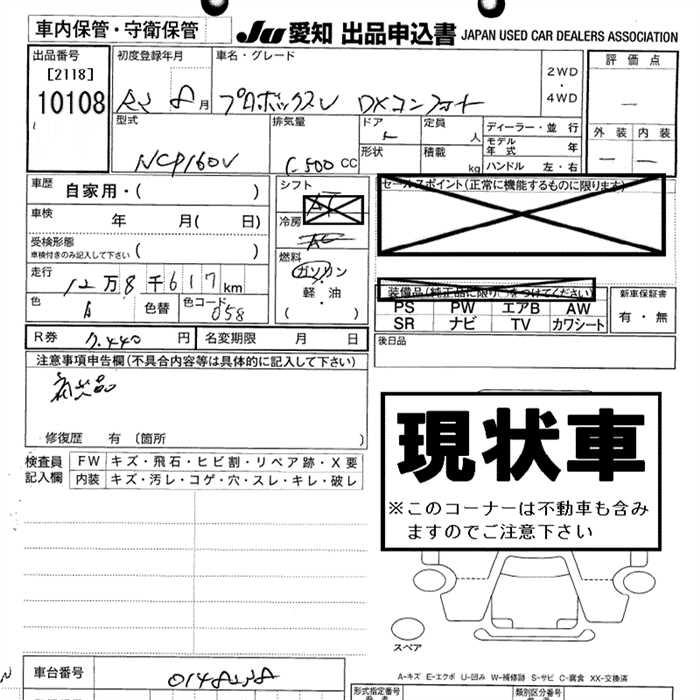 車内保管・守衛保管
JU 愛知 出品申込書 JAPAN USED CAR DEALERS ASSOCIATION
出品番号
[2118]
10108
初度登録年月
8月
車名・グレード
プロボックスV DXコンフォート
2WD
・
4WD
評価点
—
外装 内装
— —
型式
NCP160V
排気量
1,500 CC
ドア
定員 人
形状
積載 kg
ディーラー・並行
モデル年式 年
ハンドル 左・右
車歴 自家用・( )
シフト
AT
セールスポイント(正常に機能するものに限ります)
車検 年 月( 日)
冷房
AC
受検形態
車検付きのみ記入して下さい ( )
燃料
ガソリン
・
軽・油
( )
走行 12万8千617km
色 色替 色コード 058
装備品(純正品に限り○をつけてください)
PS PW エアB AW
SR ナビ TV カワシート
新車保証書
有・無
R券 7,440円
名変期限 月 日
後日品
注意事項申告欄(不具合内容等は具体的に記入して下さい)
修復歴 有 〔箇所 〕
現状車
※このコーナーは不動車も含み
ますのでご注意下さい
検査員
記入欄
FW キズ・飛石・ヒビ割・リペア跡・X要
内装 キズ・汚レ・コゲ・穴・スレ・キレ・破レ
スペア
A-キズ E-エクボ U-凹み W-補修跡 S-サビ C-腐食 XX-交換済
車台番号
形式指定番号
類別区分番号